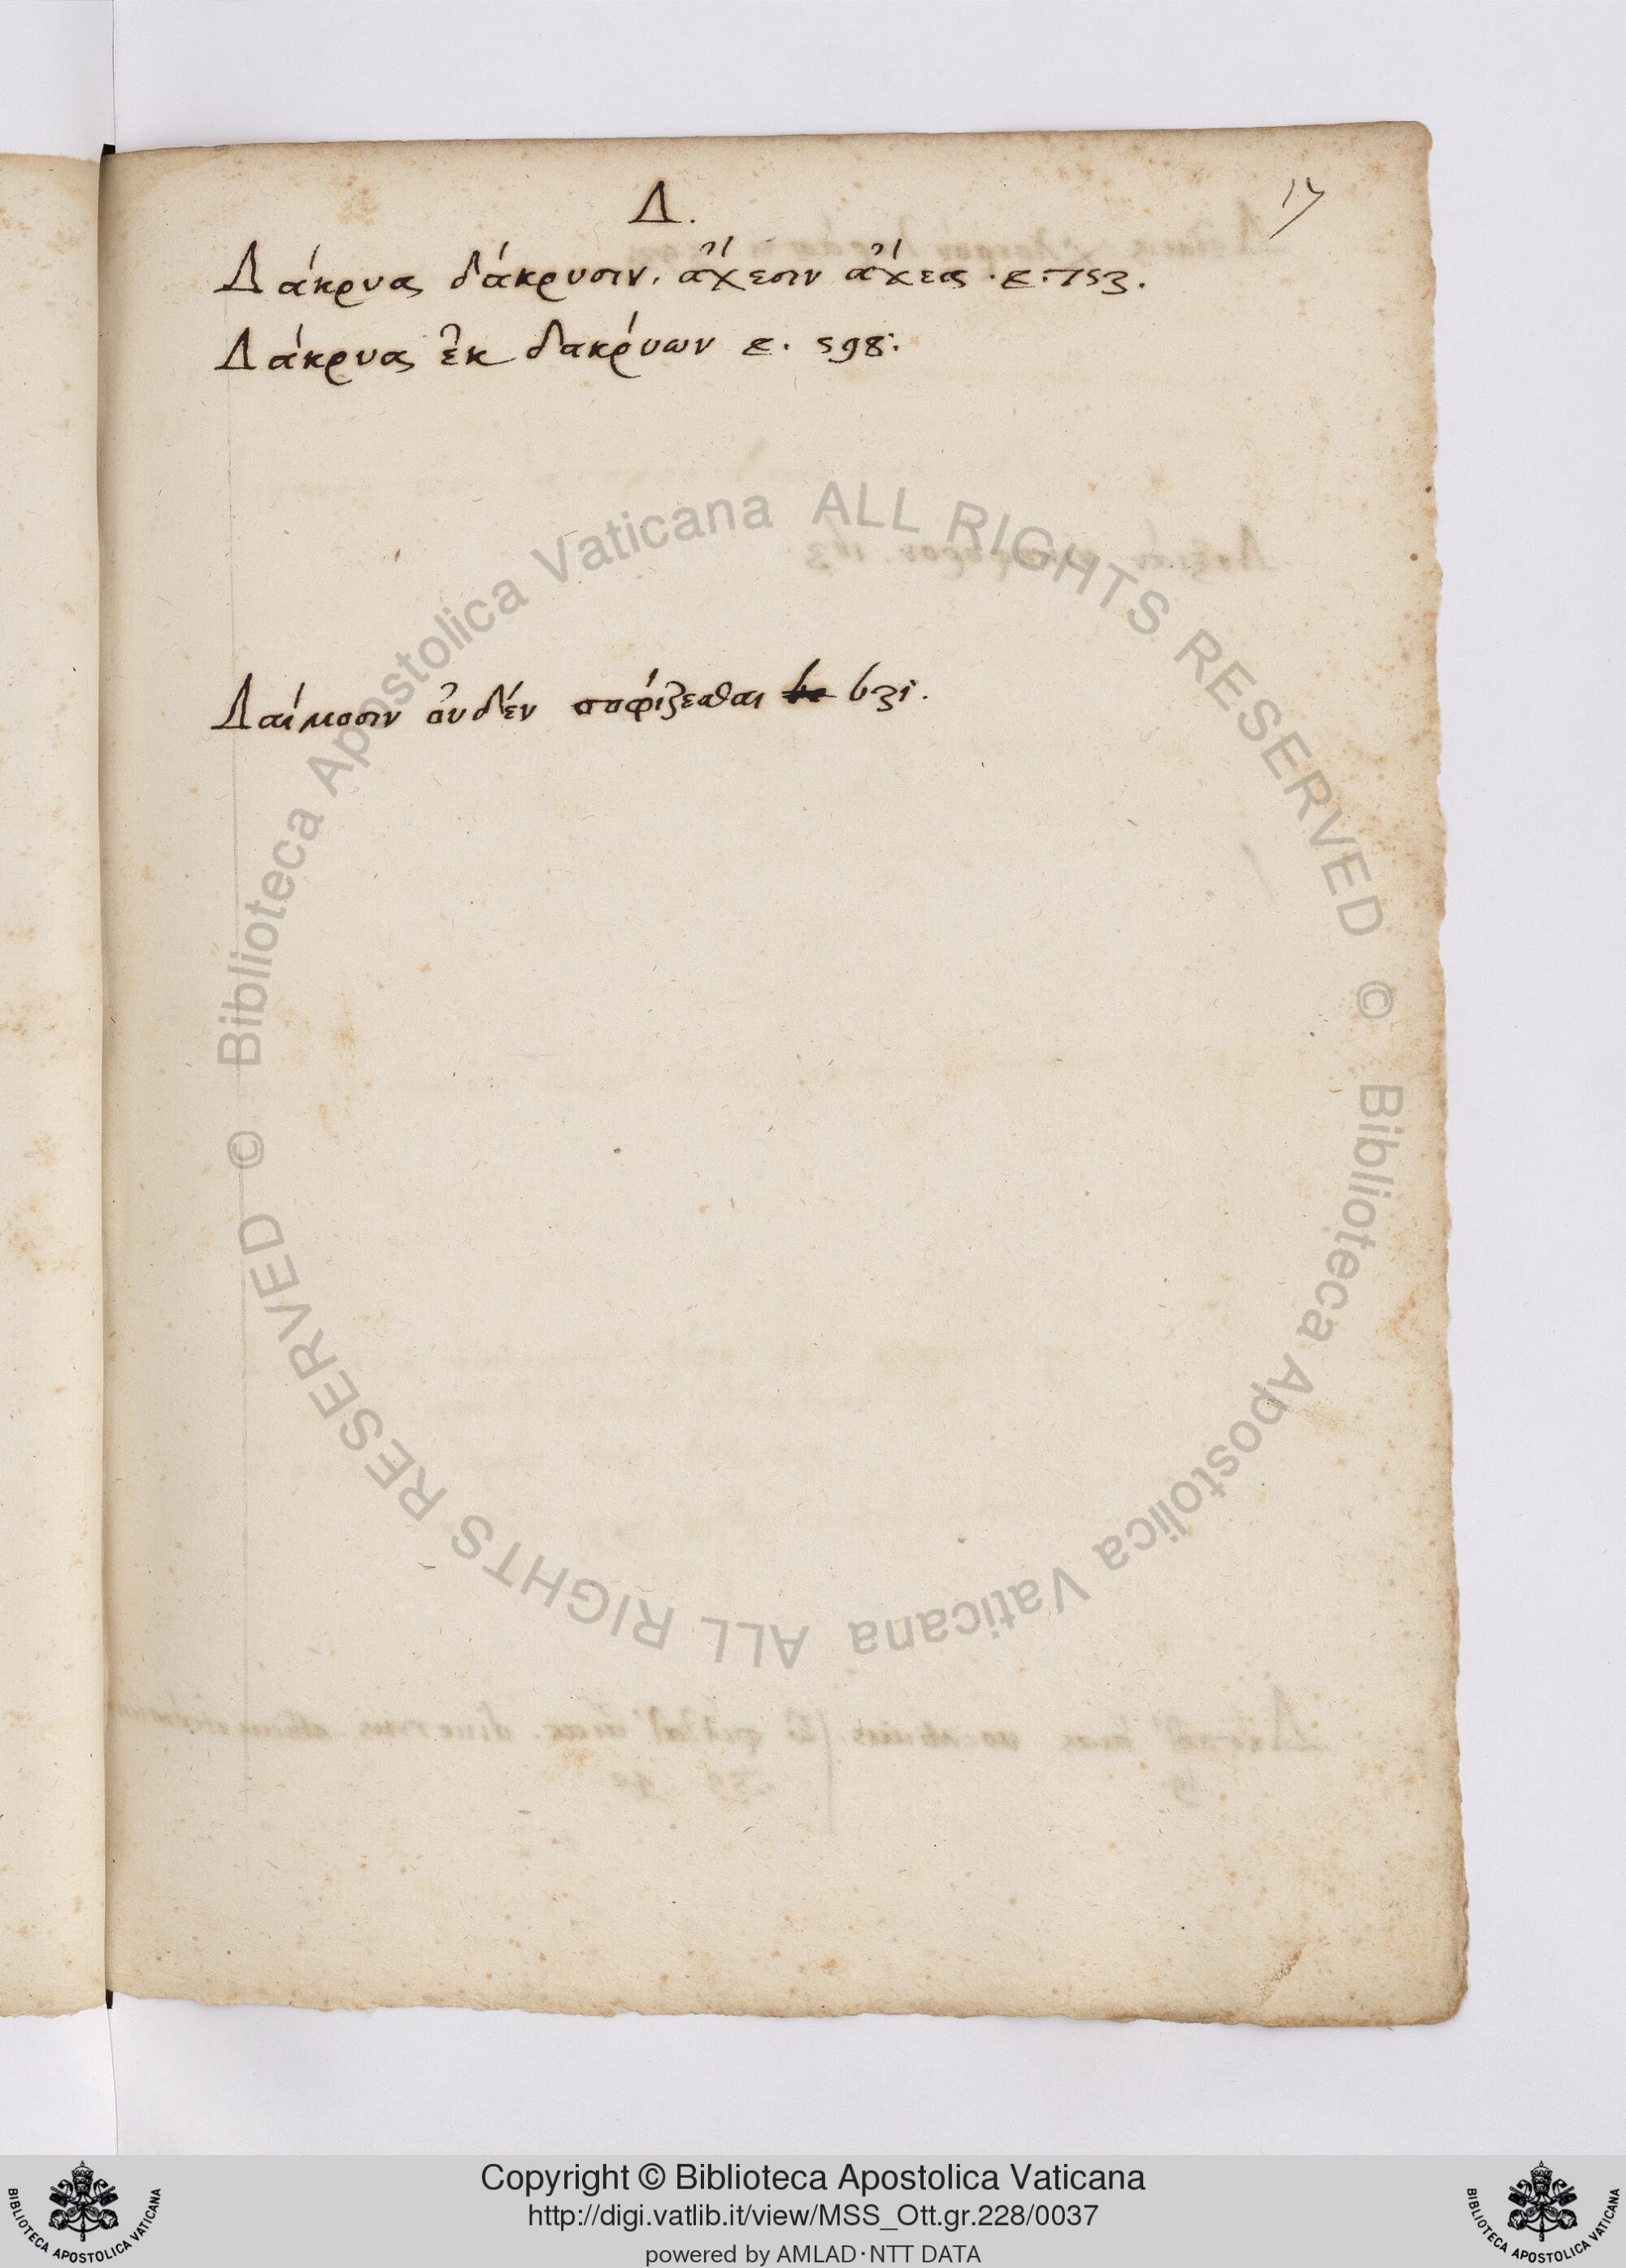 Δ. 17
Δάκρυας δάκρυσιν. ἄχεσιν ἄχεα. ε. 753.
Δάκρυας ἐκ δακρύων ε. 598.
Δαίμοσιν οὐδὲν σοφίζεσθαι 631.
© Biblioteca Apostolica Vaticana ALL RIGHTS RESERVED © Biblioteca Apostolica Vaticana ALL RIGHTS RESERVED
Copyright © Biblioteca Apostolica Vaticana
http://digi.vatlib.it/view/MSS_Ott.gr.228/0037
powered by AMLAD·NTT DATA
BIBLIOTECA APOSTOLICA VATICANA
BIBLIOTECA APOSTOLICA VATICANA